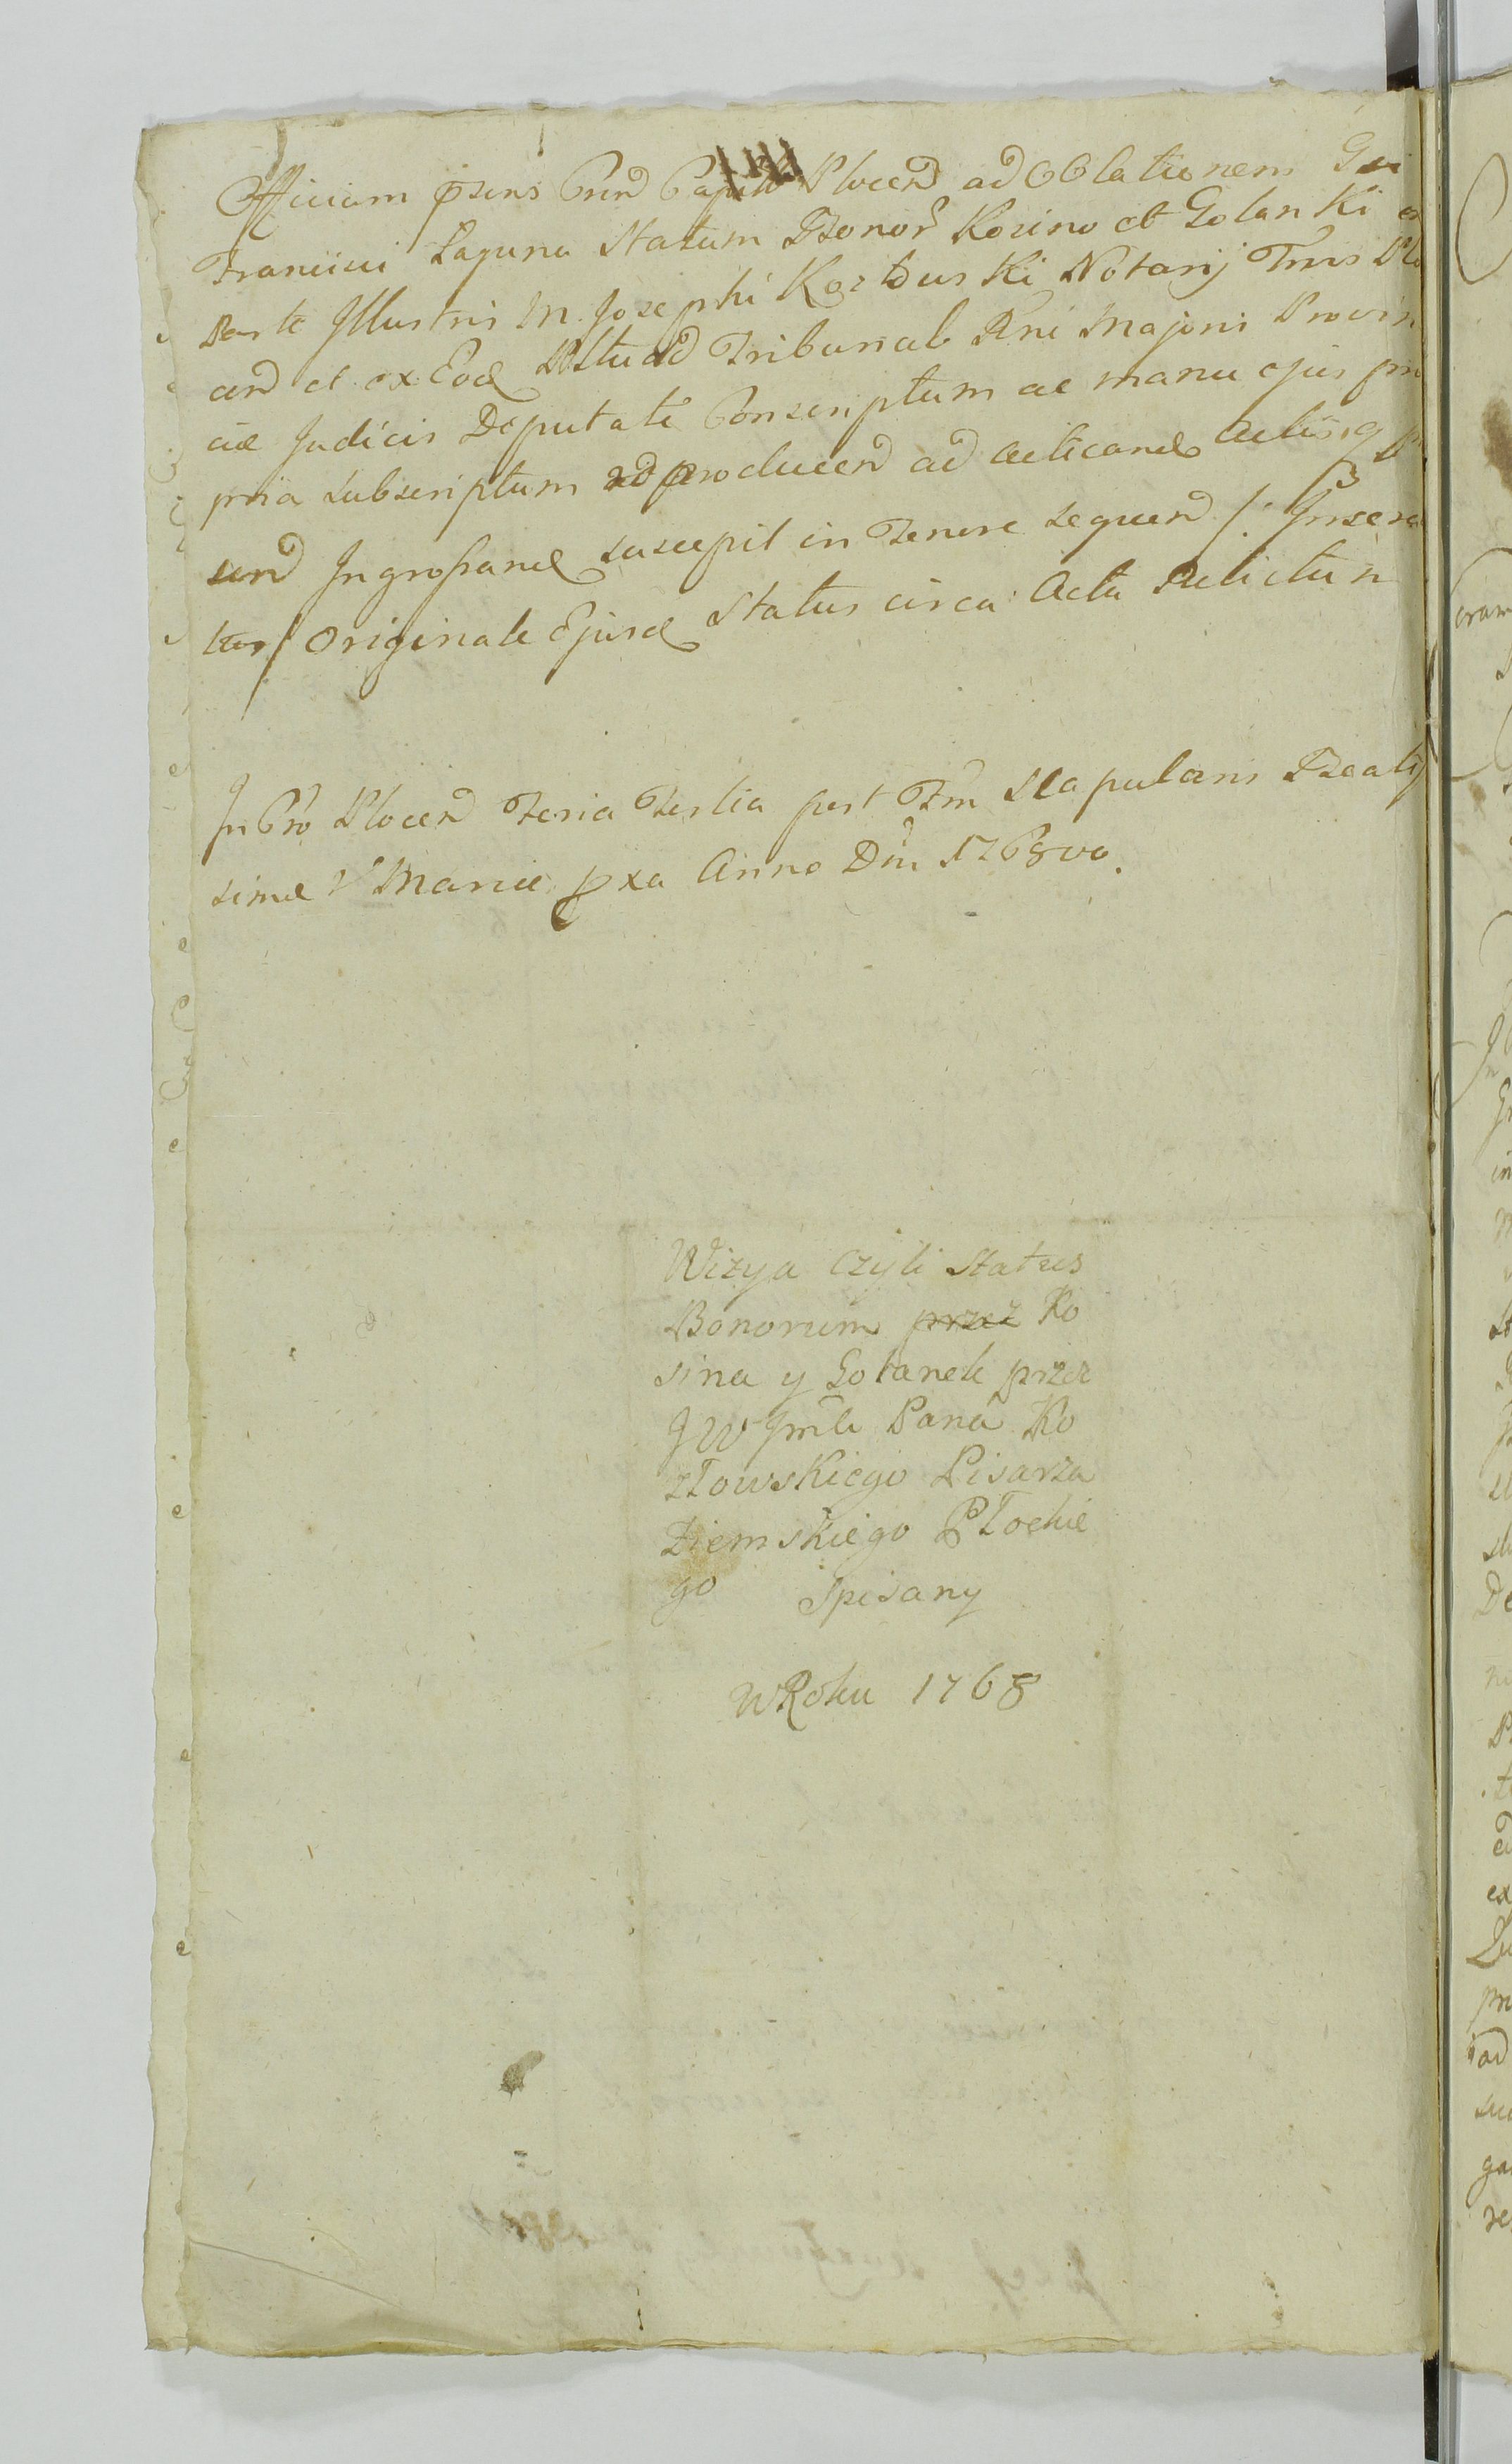 Officium pñens Cren Capit Plocen ad Oblationem
Francisci Laguna Statum Bonor Kosino et Golanki
Parte Illustris M. Josephi Kozłowski Notarij Trris Plo
cen et ex Eod Pltu ad Tribunal Rni Majoris Provin
ciæ Judicis Deputati Conscriptum ac manu ejus pro
pria Subscriptum producen ad acticand actisq
Ingrossand suscepit in Tenore sequen /: Insera
tur/ Originale Ejusd Status circa Acta relictum
In Cro Plocen Feria Tertia post Fm Scapularis Beatis
simæ V Mariæ pxa Anno Dni 1768vo.
Wizya Czyli Status
Bonorum przez Ko
sina y Golanek przez
JW Jmći Pana Ko
złowskiego Pisarza
Ziemskiego Płockie
go Spisany
w Roku 1768